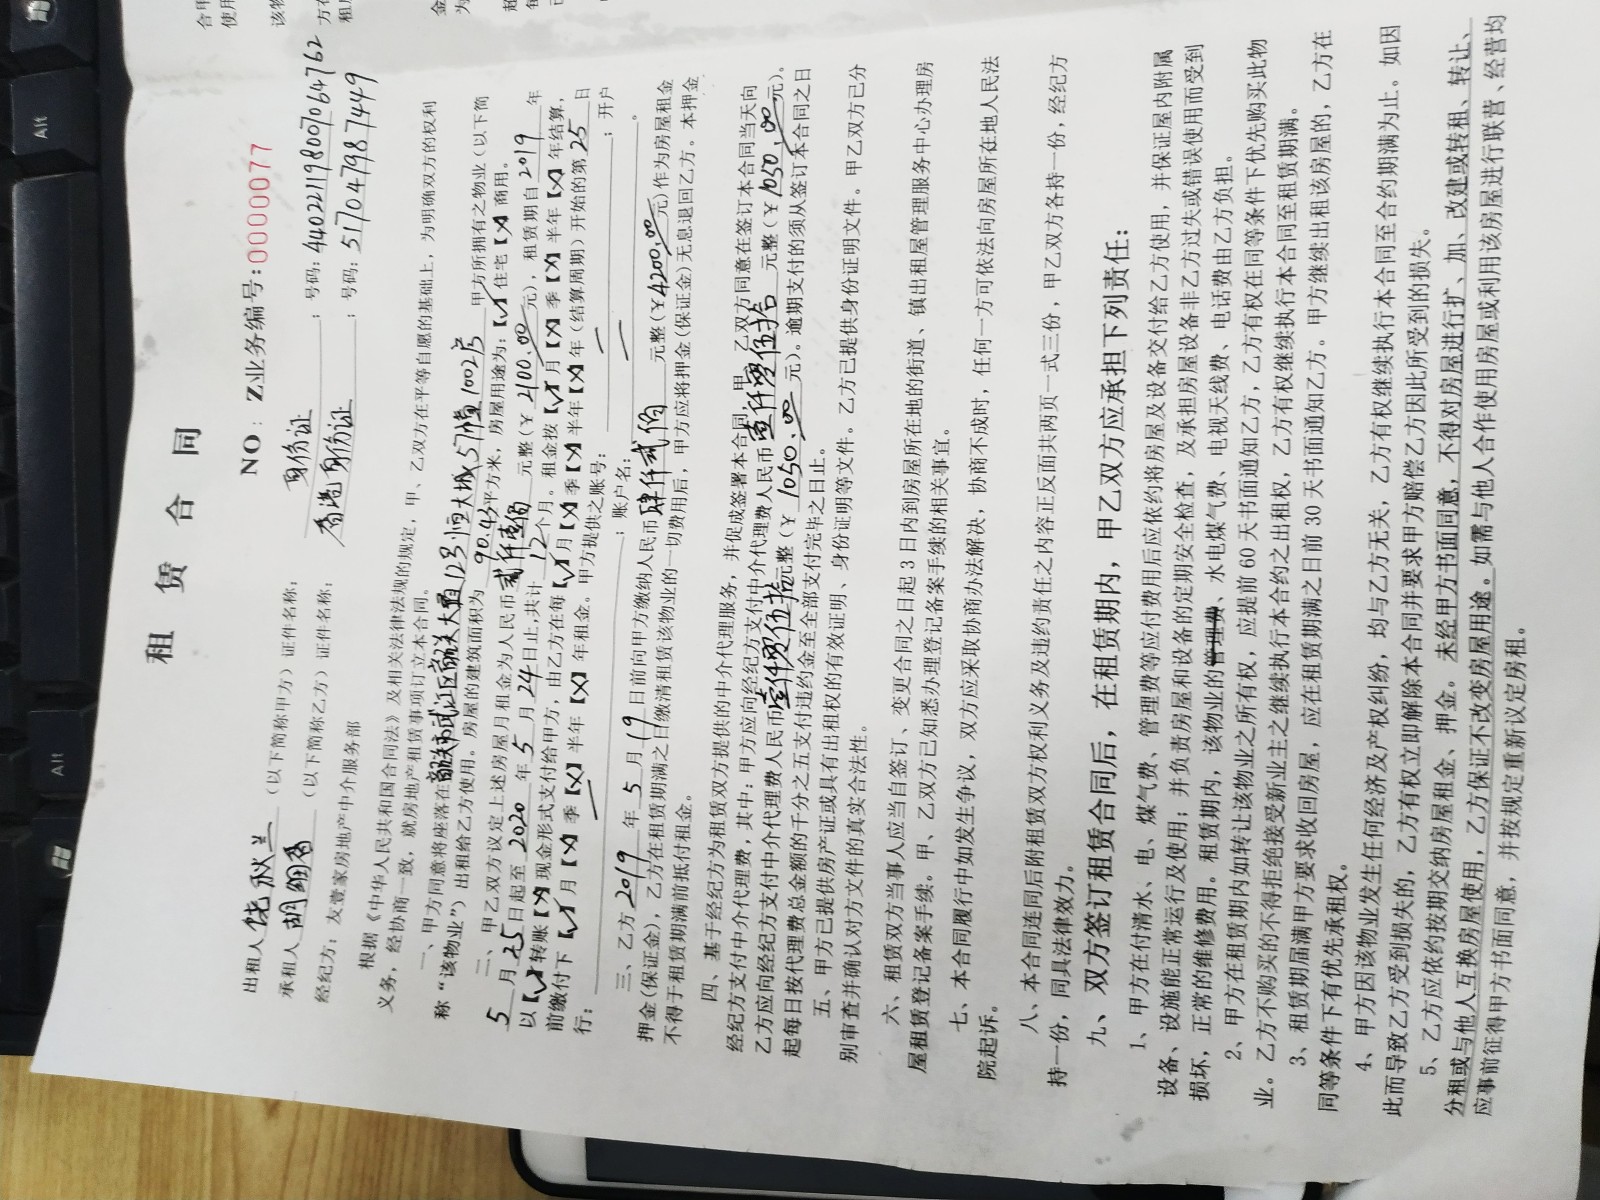 租 赁 合 同
NO: Z业务编号:0000077
出租人 饶秋兰 (以下简称甲方) 证件名称: 身份证 ;号码: 440221198007064762
承租人 胡 (以下简称乙方) 证件名称: 香港身份证 ;号码: 5170479874449
经纪方:友壹家房地产中介服务部
根据《中华人民共和国合同法》及相关法律法规的规定,甲、乙双方在平等自愿的基础上,为明确双方的权利
义务,经协商一致,就房地产租赁事项订立本合同。
一、甲方同意将座落在韶关市浈江区韶关大道123号恒大城5门幢1002房 甲方所拥有之物业(以下简
称“该物业”)出租给乙方使用。房屋的建筑面积为 90.42平方米,房屋用途为:【√】住宅【X】商用。
二、甲乙双方议定上述房屋月租金为人民币 贰仟壹佰 元整(¥ 2100.00 元),租赁期自 2019 年
5 月 25 日起至 2020 年 5 月 24 日止,共计 12 个月。租金按【√】月【X】季【X】半年【X】年结算,
以【√】转账【X】现金形式支付给甲方,由乙方在每【√】月【X】季【X】半年【X】年(结算周期)开始的第 25 日
前缴付下【√】月【X】季【X】半年【X】年租金。甲方提供之账号: ;开户
行: ;账户名: 。
三、乙方 2019 年 5 月 19 日前向甲方缴纳人民币 肆仟贰佰 元整(¥4200.00元)作为房屋租金
押金(保证金),乙方在租赁期满之日缴清租赁该物业的一切费用后,甲方应将押金(保证金)无息退回乙方。本押金
不得于租赁期满前抵付租金。
四、基于经纪方为租赁双方提供的中介代理服务,并促成签署本合同,甲、乙双方同意在签订本合同当天向
经纪方支付中介代理费,其中:甲方应向经纪方支付中介代理费人民币 壹仟零伍拾 元整(¥1050.00元)。
乙方应向经纪方支付中介代理费人民币壹仟零伍拾元整(¥ 1050.00 元)。逾期支付的须从签订本合同之日
起每日按代理费总金额的千分之五支付违约金至全部支付完毕之日止。
五、甲方已提供房产证或具有出租权的有效证明、身份证明等文件。乙方已提供身份证明文件。甲乙双方已分
别审查并确认对方文件的真实合法性。
六、租赁双方当事人应当自签订、变更合同之日起3日内到房屋所在地的街道、镇出租屋管理服务中心办理房
屋租赁登记备案手续。甲、乙双方已知悉办理登记备案手续的相关事宜。
七、本合同履行中如发生争议,双方应采取协商办法解决,协商不成时,任何一方可依法向房屋所在地人民法
院起诉。
八、本合同连同后附租赁双方权利义务及违约责任之内容正反面共两页一式三份,甲乙双方各持一份,经纪方
持一份,同具法律效力。
九、双方签订租赁合同后,在租赁期内,甲乙双方应承担下列责任:
1、甲方在付清水、电、煤气费、管理费等应付费用后应依约将房屋及设备交付给乙方使用,并保证屋内附属
设备、设施能正常运行及使用;并负责房屋和设备的定期安全检查,及承担房屋设备非乙方过失或错误使用而受到
损坏,正常的维修费用。租赁期内,该物业的管理费、水电煤气费、电视天线费、电话费由乙方负担。
2、甲方在租赁期内如转让该物业之所有权,应提前60天书面通知乙方,乙方有权在同等条件下优先购买此物
业。乙方不购买的不得拒绝接受新业主之继续执行本合约之出租权,乙方有权继续执行本合同至租赁期满。
3、租赁期届满甲方要求收回房屋,应在租赁期满之日前30天书面通知乙方。甲方继续出租该房屋的,乙方在
同等条件下有优先承租权。
4、甲方因该物业发生任何经济及产权纠纷,均与乙方无关,乙方有权继续执行本合同至合约期满为止。如因
此而导致乙方受到损失的,乙方有权立即解除本合同并要求甲方赔偿乙方因此所受到的损失。
5、乙方应依约按期交纳房屋租金、押金。未经甲方书面同意,不得对房屋进行扩、加、改建或转租、转让、
分租或与他人互换房屋使用,乙方保证不改变房屋用途。如需与他人合作使用房屋或利用该房屋进行联营、经营均
应事前征得甲方书面同意,并按规定重新议定房租。
Alt
Alt